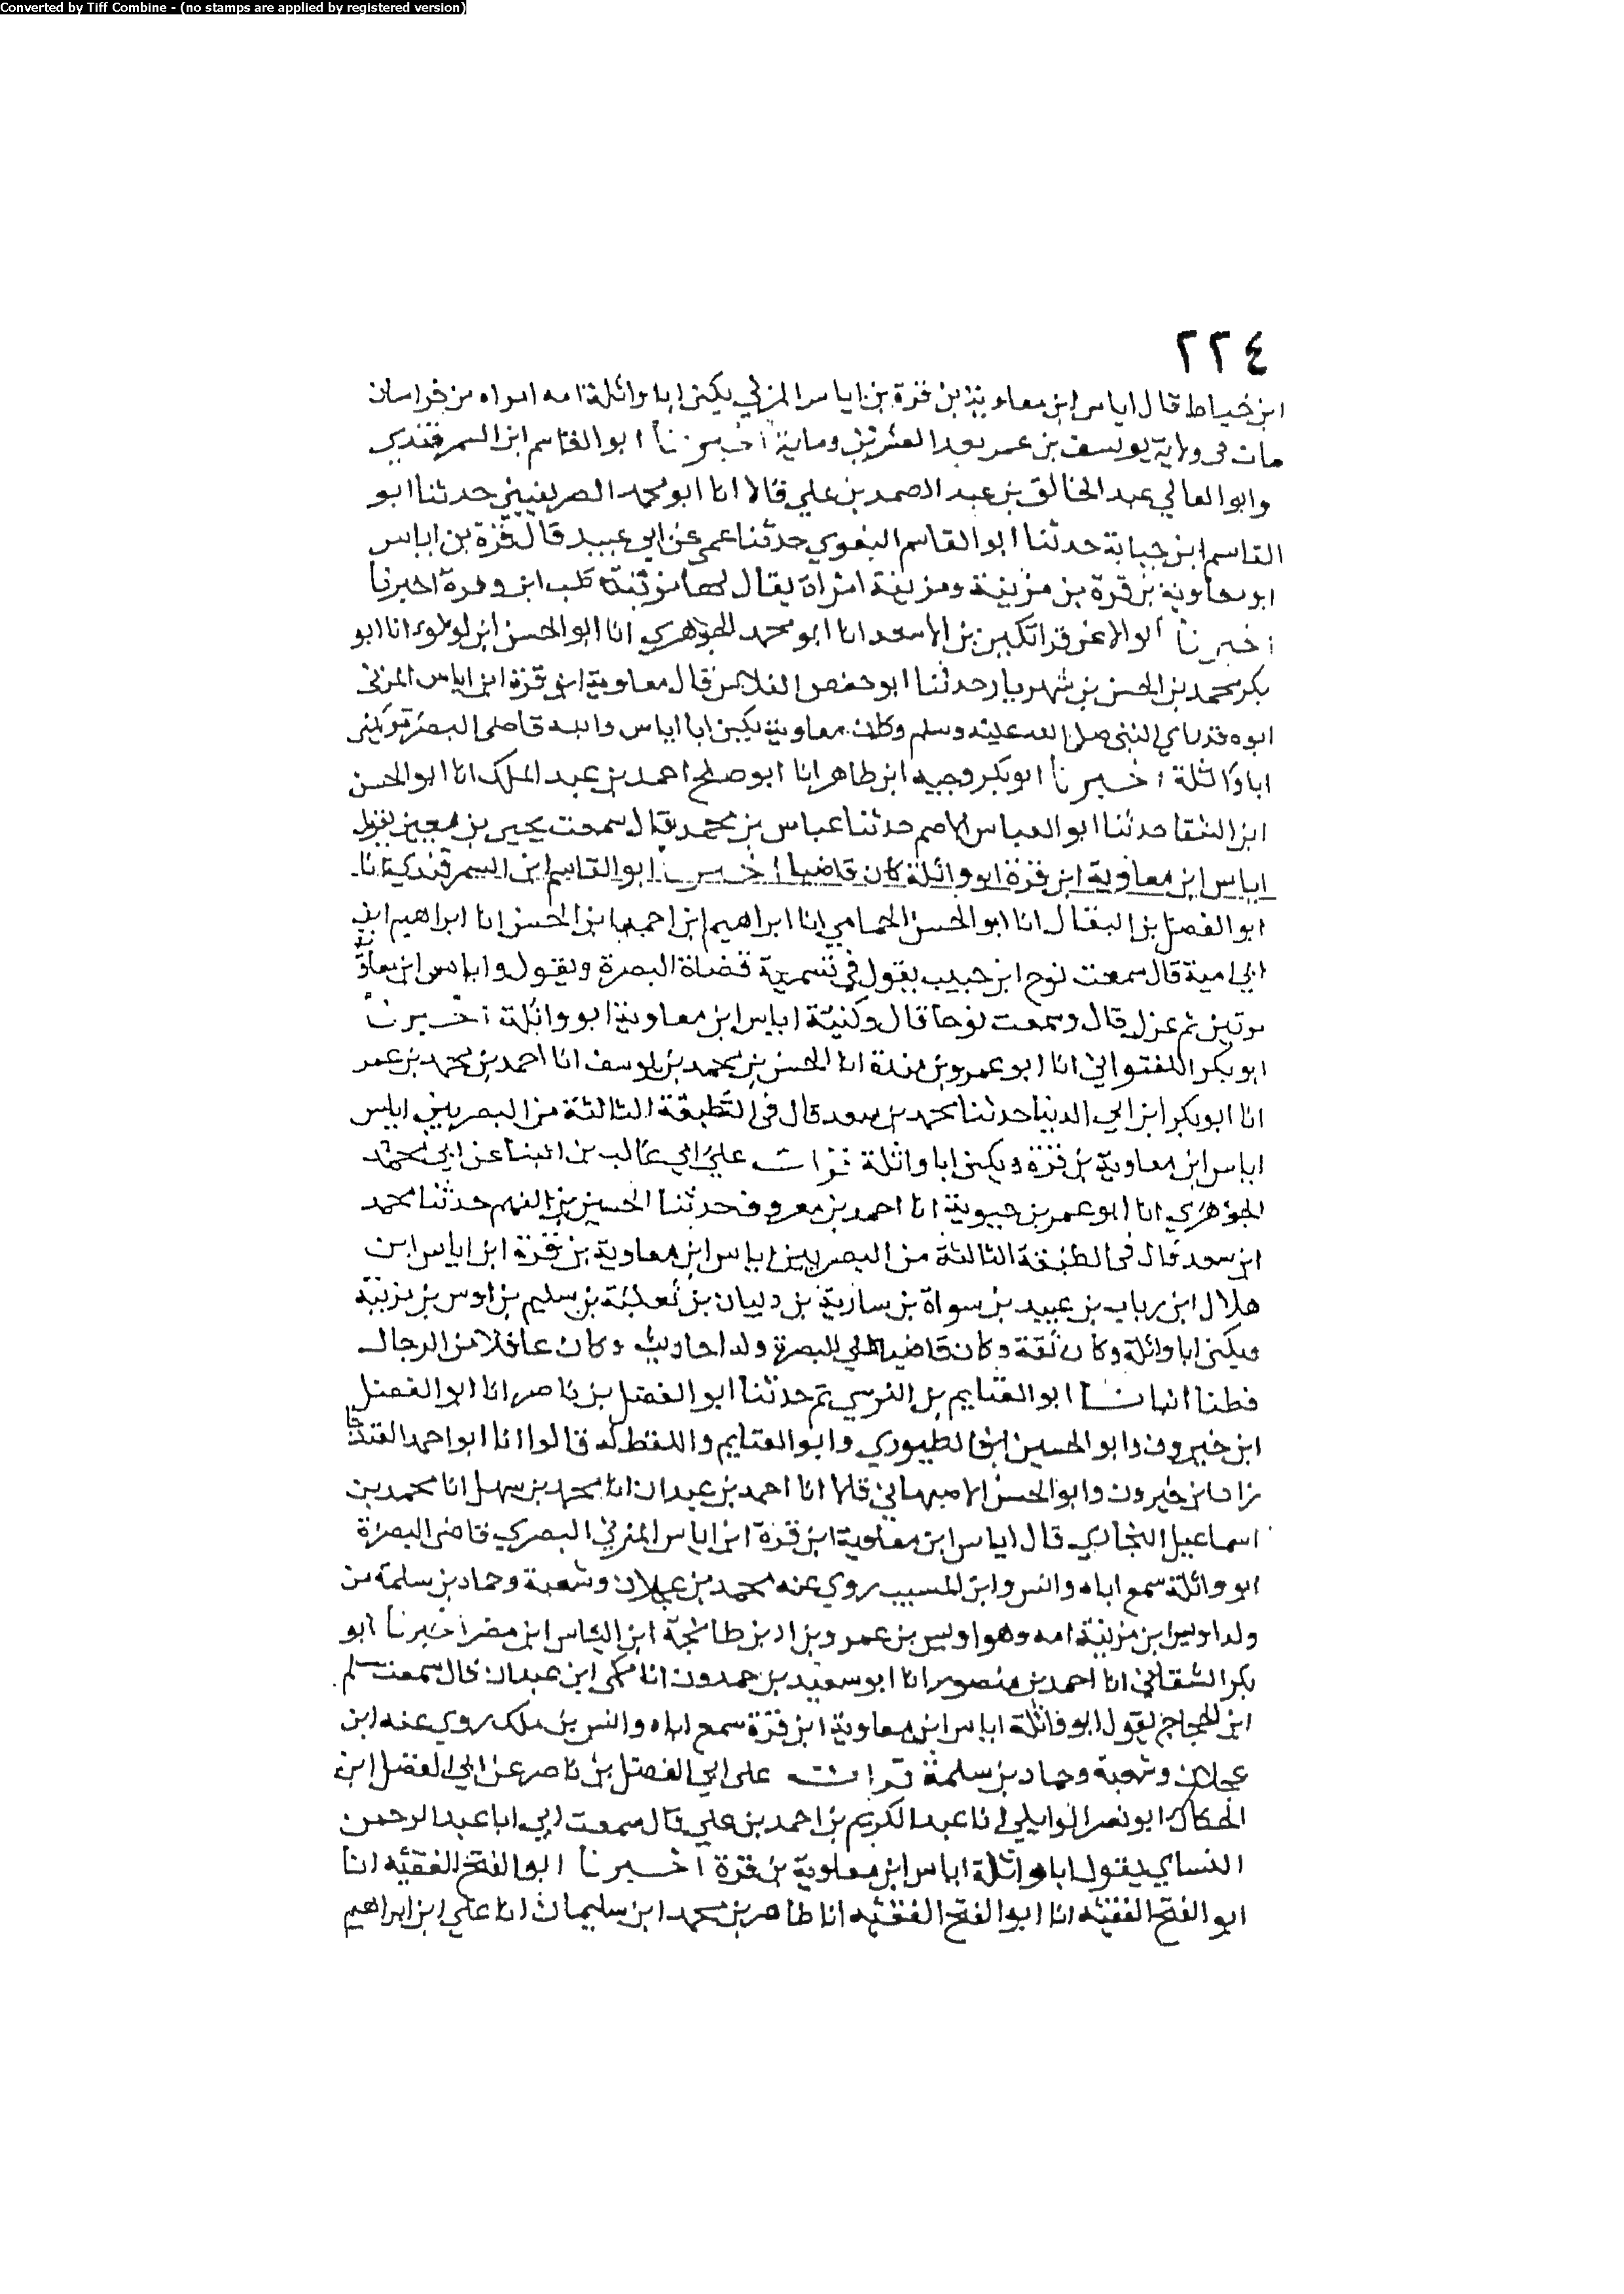 Converted by Tiff Combine - (no stamps are applied by registered version)
٢٢٤
ابن خياط قال اياس ابن معاوية بن قرة بن اياس المزني يكنى ابا وائلة امه امراه من خراسان
مات في ولاية يوسف بن عمر بعد العشرين وماية اخبرنا ابو القاسم ابن السمرقندي
وابو المعالي عبد الخالق بن عبد الصمد بن علي قالا انا ابو محمد الصريفيني حدثنا ابو
القاسم ابن حبابة حدثنا ابو القاسم البغوي حدثنا عمي عن ابي عبيد قال قرة بن اياس
ابو معاوية بن قرة بن مزينة ومزينة امراة يقال لها مزينة كلب ابن وبرة اخبرنا
اخبرنا ابو الاعز قراتكين بن الاسعد انا ابو محمد الجوهري انا ابو الحسن ابن لولوء انا ابو
بكر محمد بن الحسن بن شهريار حدثنا ابو حفص الفلاس قال معاوية ابن قرة ابن اياس المزني
ابوه قد راي النبي صلى الله عليه وسلم وكان معاوية يكنى ابا اياس وابنه قاضي البصرة يكنى
ابا واثلة اخبرنا ابو بكر وجيه ابن طاهر انا ابو صلح احمد بن عبد الملك انا ابو الحسن
ابن السقا حدثنا ابو العباس الاصم حدثنا عباس بن محمد قال سمعت يحيى بن معين يقول
اياس ابن معاوية ابن قرة ابو وائلة كان قاضيا اخبرنا ابو القاسم ابن السمرقندي انا
ابو الفضل بن البقال انا ابو الحسن الحمامي انا ابراهيم ابن احمد ابن الحسن انا ابراهيم ابن
ابي امية قال سمعت نوح ابن حبيب يقول في تسمية قضاة البصرة ويقول واياس ابن معاوية
مرتين ثم عزل قال وسمعت نوحا قال وكنية اياس ابن معاوية ابو وائلة اخبرنا
ابو بكر اللفتواني انا ابو عمرو بن مندة انا الحسن بن محمد بن يوسف انا احمد بن محمد بن عمر
انا ابو بكر ابن ابي الدنيا حدثنا محمد بن سعد قال في الطبقة الثالثة من البصريين اياس
اياس ابن معاوية بن قرة ويكنى ابا واثلة قرات على ابي غالب بن البنا عن ابي محمد
الجوهري انا ابو عمر بن حيوية انا احمد بن معروف حدثنا الحسين بن الفهم حدثنا محمد
ابن سعد قال في الطبقة الثالثة من البصريين اياس ابن معاوية بن قرة ابن اياس ابن
هلال ابن رباب بن عبيد بن سواة بن سارية بن دبيان بن ثعلبة بن سليم بن اوس بن مزينة
ويكنى ابا وائلة وكان ثقة وكان قاضيا على البصرة وله احاديث وكان عاقلا من الرجال
فطنا انبانا ابو الغنايم بن النرسي ثم حدثنا ابو الفضل بن ناصر انا ابو الفضل
ابن خيرون وابو الحسين ابن الطيوري وابو الغنايم واللفظ له قالوا انا ابو احمد الغندجا
زاد ابن خيرون وابو الحسن الاصبهاني قالا انا احمد بن عبدان انا محمد بن سهل انا محمد بن
اسماعيل البخاري قال اياس ابن معاوية ابن قرة ابن اياس المزني البصري قاضي البصرة
ابو وائلة سمع اباه وانس وابن المسيب روي عنه محمد بن عجلان وشعبة وحماد بن سلمة من
ولد اوس ابن مزينة امه وهو اويس بن عمرو بن اد بن طابخة ابن الياس ابن مضر اخبرنا ابو
بكر الشقاني انا احمد بن منصور انا ابو سعيد بن حمدون انا مكي ابن عبدان قال سمعت مسلم
ابن الحجاج يقول ابو واثلة اياس ابن معاوية ابن قرة سمع اباه وانس بن ملك روي عنه ابن
عجلان وشعبة وحماد بن سلمة قرات على ابي الفضل بن ناصر عن ابي الفضل ابن
الحكاك ابو نصر الوايلي انا عبد الكريم بن احمد بن علي قال سمعت ابي ابا عبد الرحمن
النساي يقول ابا واثلة اياس ابن معاوية بن قرة اخبرنا ابو الفتح الفقيه انا
ابو الفتح الفقيه انا ابو الفتح الفقيه انا طاهر بن محمد ابن سليمان انا علي ابن ابراهيم